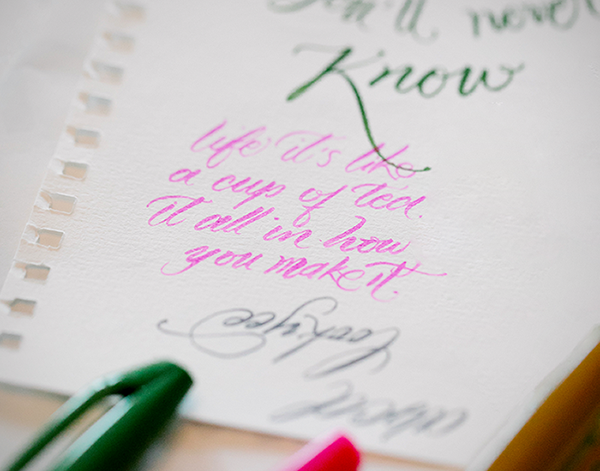 you'll never
Know
life it's like
a cup of tea.
it all in how
you make it.